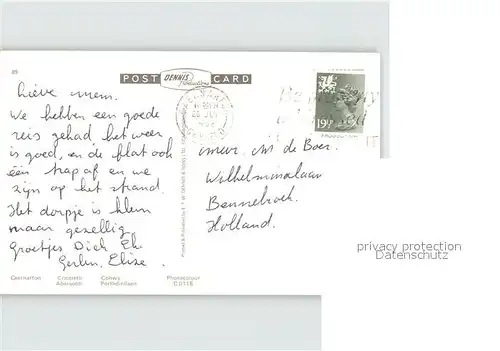 89
POST DENNIS CARD
lieve mem.
We hebben een goede
reis gehad, het weer
is goed, en de flat ook
één trap af en we
zijn op het strand.
Het dorpje is klein
maar gezellig
Groetjes Dick Eh
Gerlin, Elize.
19½P
de Boer.
Wilhelminalaan
Bennebroek.
Holland.
privacy protection
Datenschutz
Caernarfon Criccieth Conwy Phonecolour
Abersoch Porthdinllaen